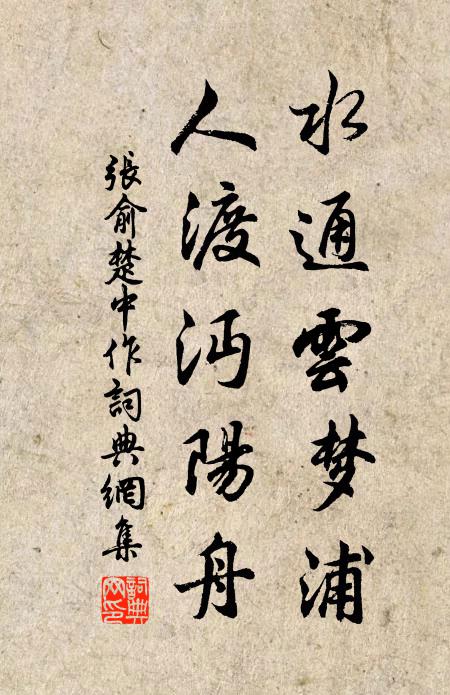 水通雲梦浦
人渡沔陽舟
張俞楚中作詞典網集
詞典网印